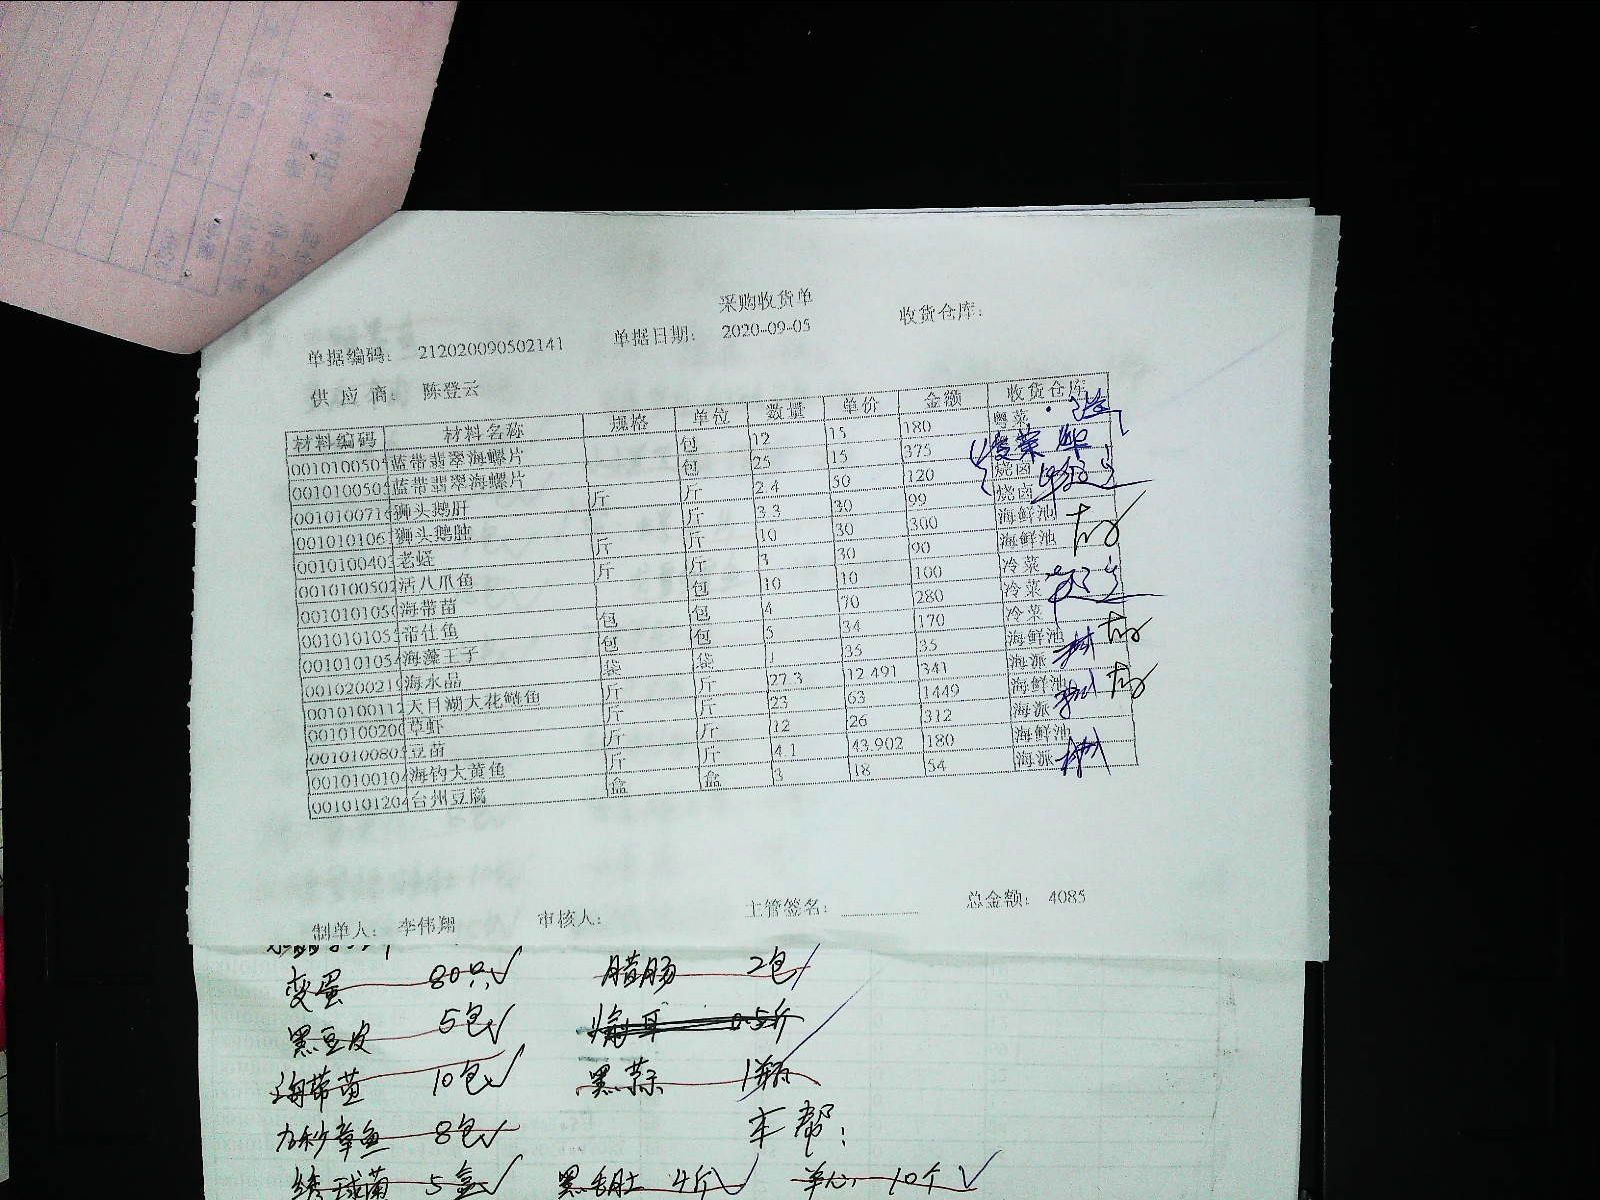 采购收货单
单据编码: 212020090502141 单据日期: 2020-09-05 收货仓库:
供应商: 陈登云
材料编码 材料名称 规格 单位 数量 单价 金额 收货仓库
001010050 蓝带翡翠海螺片 包 12 15 180 粤菜
001010050 蓝带翡翠海螺片 包 25 15 375
001010071 狮头鹅肝 斤 斤 2.4 50 120 烧卤
001010106 狮头鹅肫 斤 3.3 30 99 烧卤
001010040 老蛏 斤 斤 10 30 300 海鲜池
001010050 活八爪鱼 斤 斤 3 30 90 海鲜池
001010105 海带苗 包 10 10 100 冷菜
001010105 帝仕鱼 包 包 4 70 280 冷菜
001010105 海藻王子 包 包 5 34 170 冷菜
001020021 海水晶 袋 袋 1 35 35 海鲜池
001010011 天目湖大花鲢鱼 斤 斤 27.3 12.491 341 海派
001010020 草虾 斤 斤 23 63 1449 海鲜池
001010080 豆苗 斤 斤 12 26 312 海派
001010010 海钓大黄鱼 斤 斤 4.1 43.902 180 海鲜池
001010120 台州豆腐 盒 盒 3 18 54 海派
制单人: 李伟翔 审核人: 主管签名: 总金额: 4085
变蛋 80只 腊肠 2包
黑豆皮 5包 0.5斤
海带苗 10包 黑蒜 1瓶
九秒章鱼 8包 车帮:
绣球菌 5盒 黑毛肚 4斤 羊心 10个